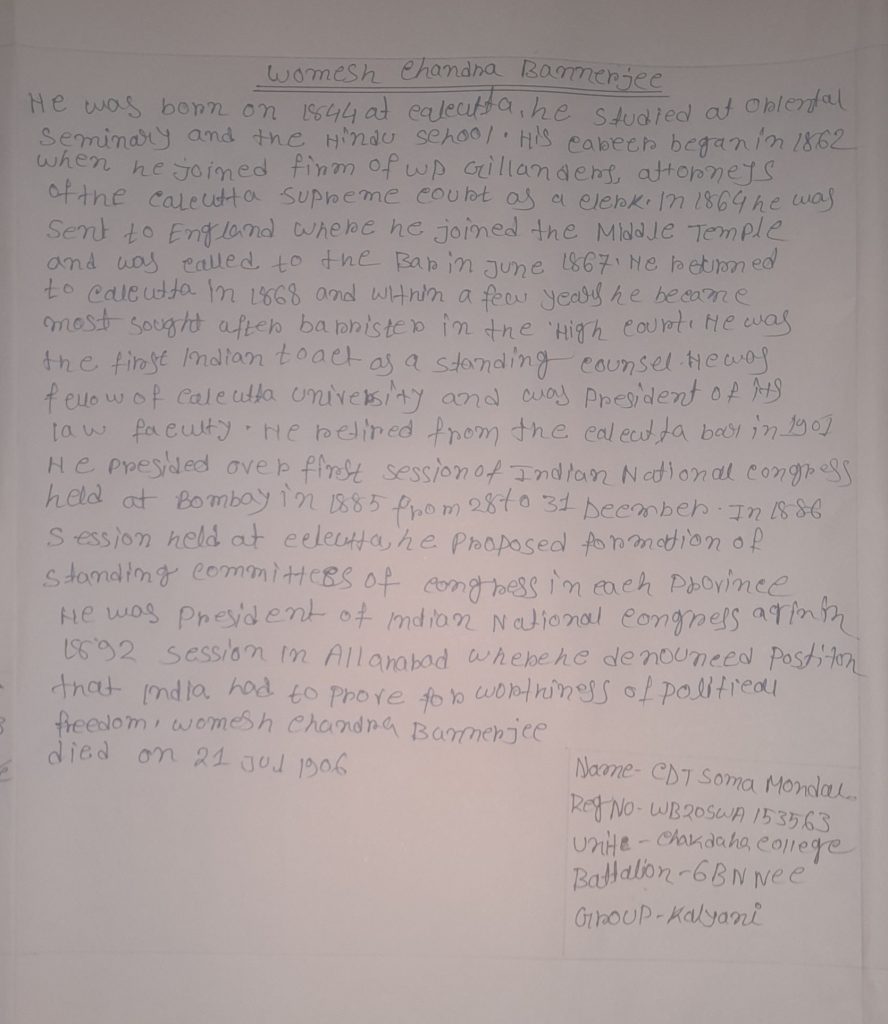 Womesh Chandra Bannerjee
He was born on 1844 at calcutta, he studied at Oriental
Seminary and the Hindu school. His career began in 1862
when he joined firm of WP Gillanders, attorneys
of the Calcutta Supreme court as a clerk. In 1864 he was
Sent to England where he joined the Middle Temple
and was called to the Bar in June 1867. He returned
to calcutta in 1868 and within a few years he became
most sought after barrister in the High court. He was
the first Indian to act as a standing counsel. He was
fellow of calcutta university and was President of its
law faculty. He retired from the calcutta bar in 1901
He presided over first session of Indian National congress
held at Bombay in 1885 from 28 to 31 December. In 1886
Session held at celcutta, he proposed formation of
standing committees of congress in each province
He was President of Indian National congress again in
1892 session in Allahabad where he denounced position
that India had to prove for worthiness of political
freedom. Womesh Chandra Bannerjee
died on 21 Jul 1906
Name- CDT Soma Mondal
Reg No- WB20SWA 153563
Unite - Chakdaha, college
Battalion - 6 BN NCC
Group - Kalyani